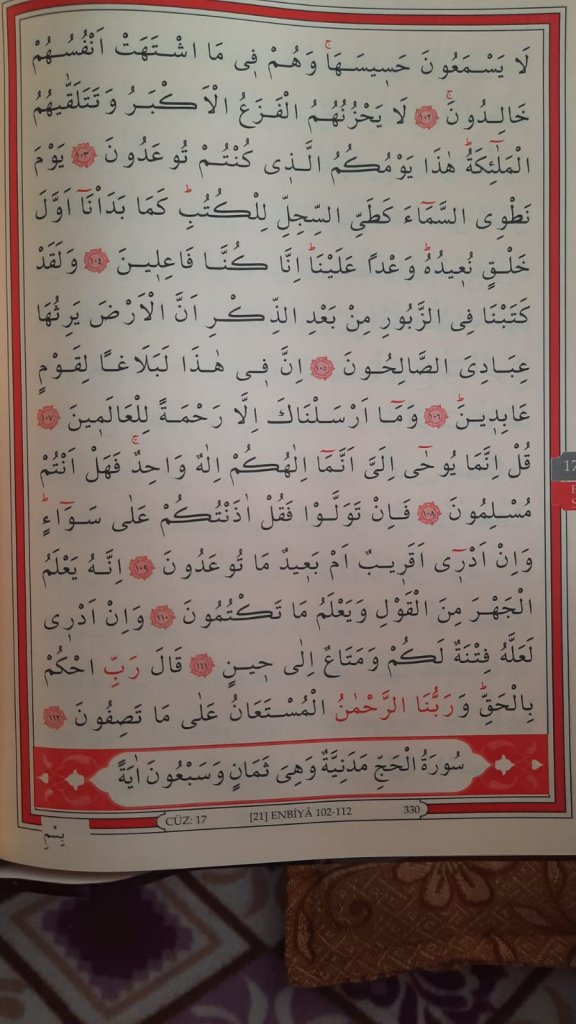 لَا يَسْمَعُونَ حَسٖيسَهَاۚ وَهُمْ فٖى مَا اشْتَهَتْ اَنْفُسُهُمْ
خَالِدُونَۚ ﴿١٠٢﴾ لَا يَحْزُنُهُمُ الْفَزَعُ الْاَكْبَرُ وَتَتَلَقّٰيهُمُ
الْمَلٰٓئِكَةُؕ هٰذَا يَوْمُكُمُ الَّذٖى كُنْتُمْ تُوعَدُونَ ﴿١٠٣﴾ يَوْمَ
نَطْوِى السَّمَٓاءَ كَطَىِّ السِّجِلِّ لِلْكُتُبِؕ كَمَا بَدَأْنَٓا اَوَّلَ
خَلْقٍ نُعٖيدُهُؕ وَعْداً عَلَيْنَاؕ اِنَّا كُنَّا فَاعِلٖينَ ﴿١٠٤﴾ وَلَقَدْ
كَتَبْنَا فِى الزَّبُورِ مِنْ بَعْدِ الذِّكْرِ اَنَّ الْاَرْضَ يَرِثُهَا
عِبَادِىَ الصَّالِحُونَ ﴿١٠٥﴾ اِنَّ فٖى هٰذَا لَبَلَاغاً لِقَوْمٍ
عَابِدٖينَؕ ﴿١٠٦﴾ وَمَٓا اَرْسَلْنَاكَ اِلَّا رَحْمَةً لِلْعَالَمٖينَ ﴿١٠٧﴾
قُلْ اِنَّمَا يُوحٰٓى اِلَىَّ اَنَّمَٓا اِلٰهُكُمْ اِلٰهٌ وَاحِدٌۚ فَهَلْ اَنْتُمْ
مُسْلِمُونَ ﴿١٠٨﴾ فَاِنْ تَوَلَّوْا فَقُلْ اٰذَنْتُكُمْ عَلٰى سَوَٓاءٍؕ
وَاِنْ اَدْرٖٓى اَقَرٖيبٌ اَمْ بَعٖيدٌ مَا تُوعَدُونَ ﴿١٠٩﴾ اِنَّهُ يَعْلَمُ
الْجَهْرَ مِنَ الْقَوْلِ وَيَعْلَمُ مَا تَكْتُمُونَ ﴿١١٠﴾ وَاِنْ اَدْرٖى
لَعَلَّهُ فِتْنَةٌ لَكُمْ وَمَتَاعٌ اِلٰى حٖينٍ ﴿١١١﴾ قَالَ رَبِّ احْكُمْ
بِالْحَقِّؕ وَرَبُّنَا الرَّحْمٰنُ الْمُسْتَعَانُ عَلٰى مَا تَصِفُونَ ﴿١١٢﴾
سُورَةُ الْحَجِّ مَدَنِيَّةٌ وَهِىَ ثَمَانٍ وَسَبْعُونَ اٰيَةً
CÜZ: 17 [21] ENBİYÂ 102-112 330
بِسْمِ
17